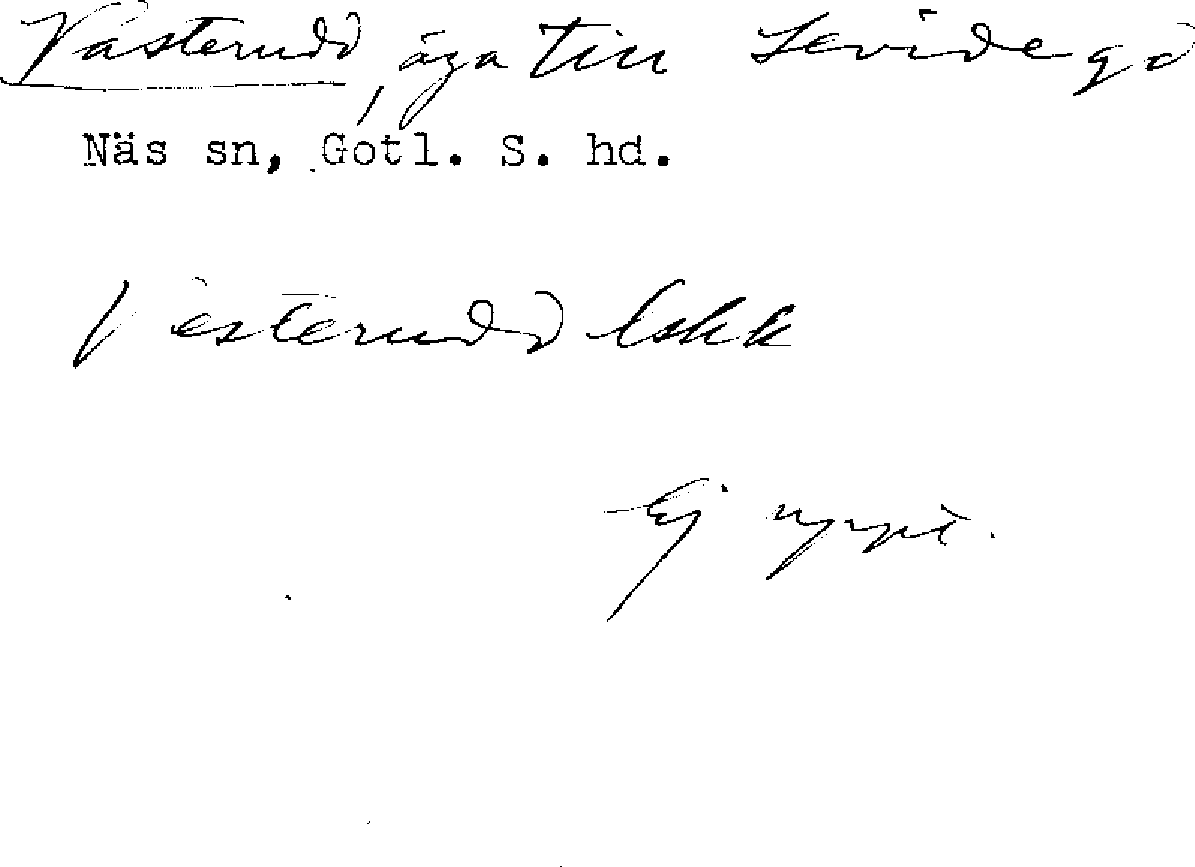 Västerudd, äga till Levide gd
Näs sn, Gotl. S. hd.
Västerudd Eskk
Ej uppt.